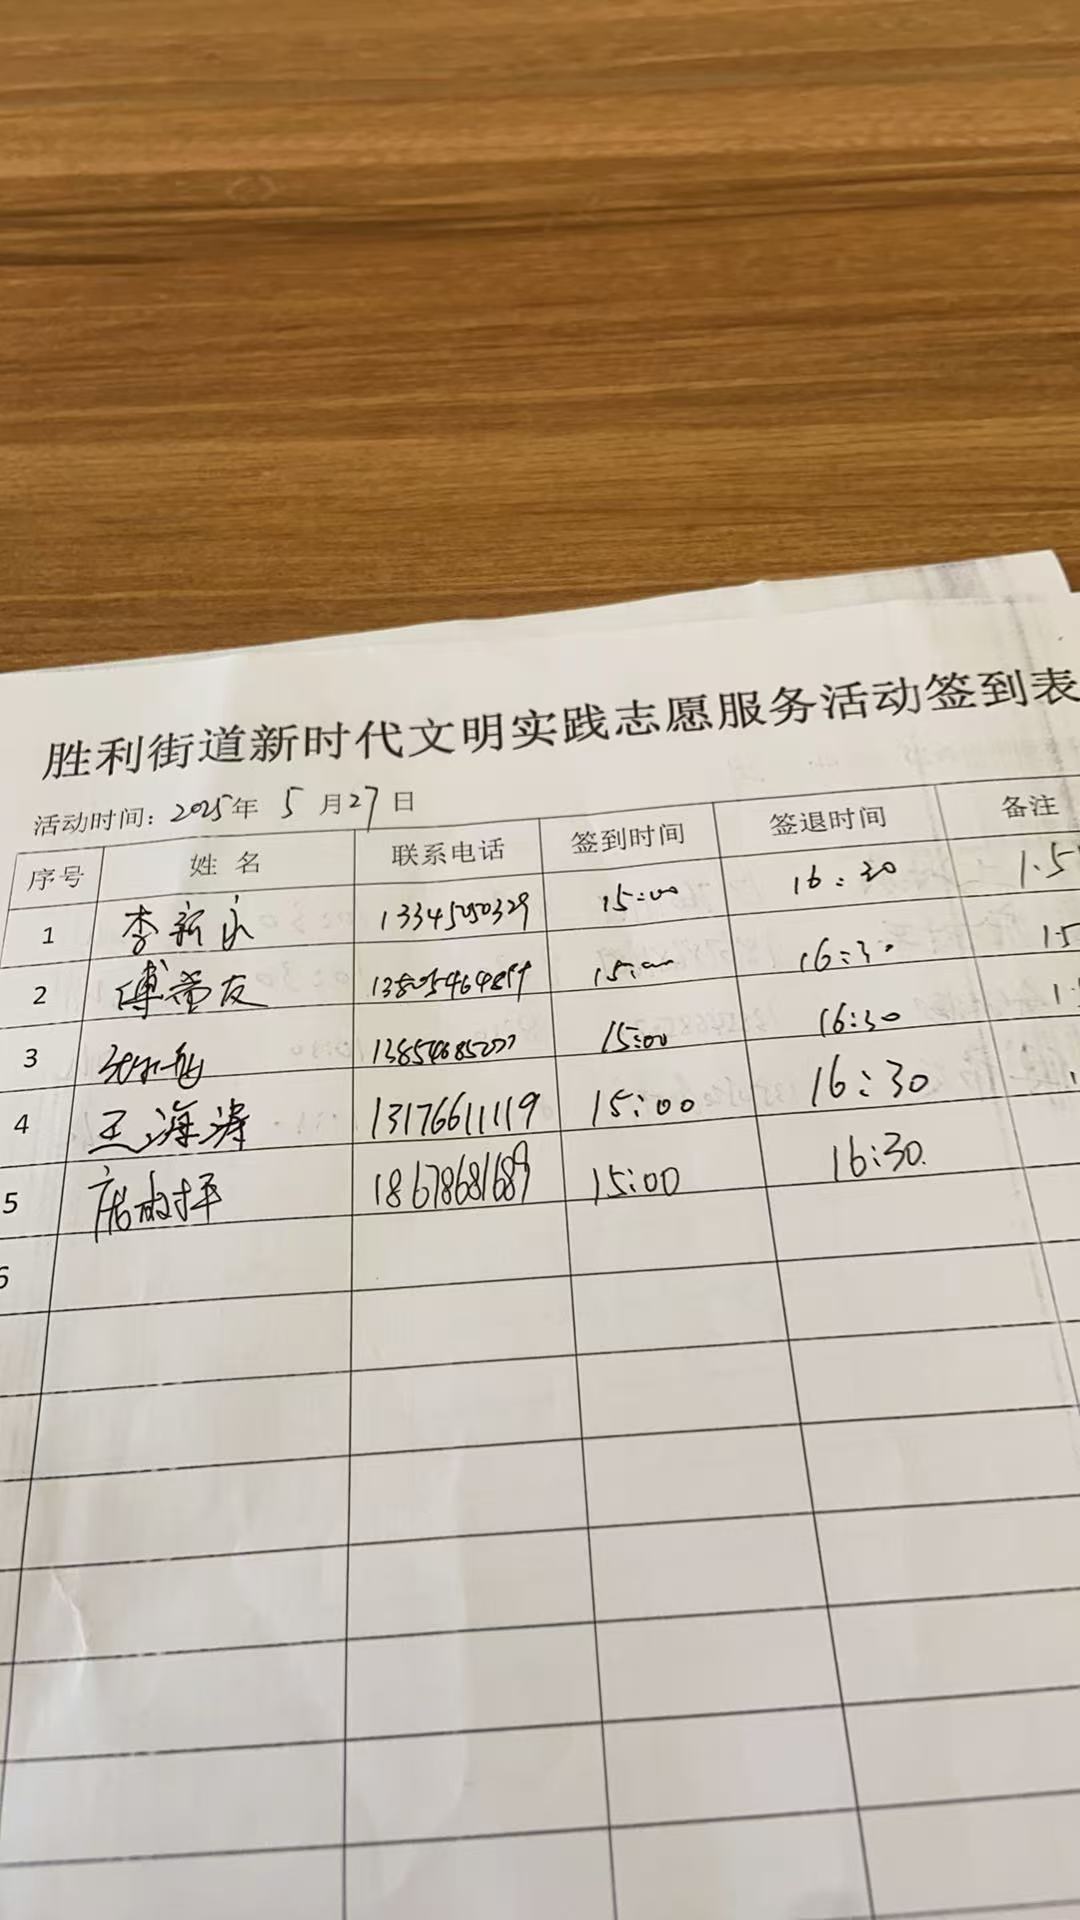 胜利街道新时代文明实践志愿服务活动签到表
活动时间：2025年 5 月27日
序号 姓 名 联系电话 签到时间 签退时间 备注
1 李新永 13345050329 15:00 16:30 1.5
2 傅希友 15:00 16:30 1.5
3 15:00 16:30 1.
4 王海涛 13176611119 15:00 16:30
5 18678681689 15:00 16:30.
6